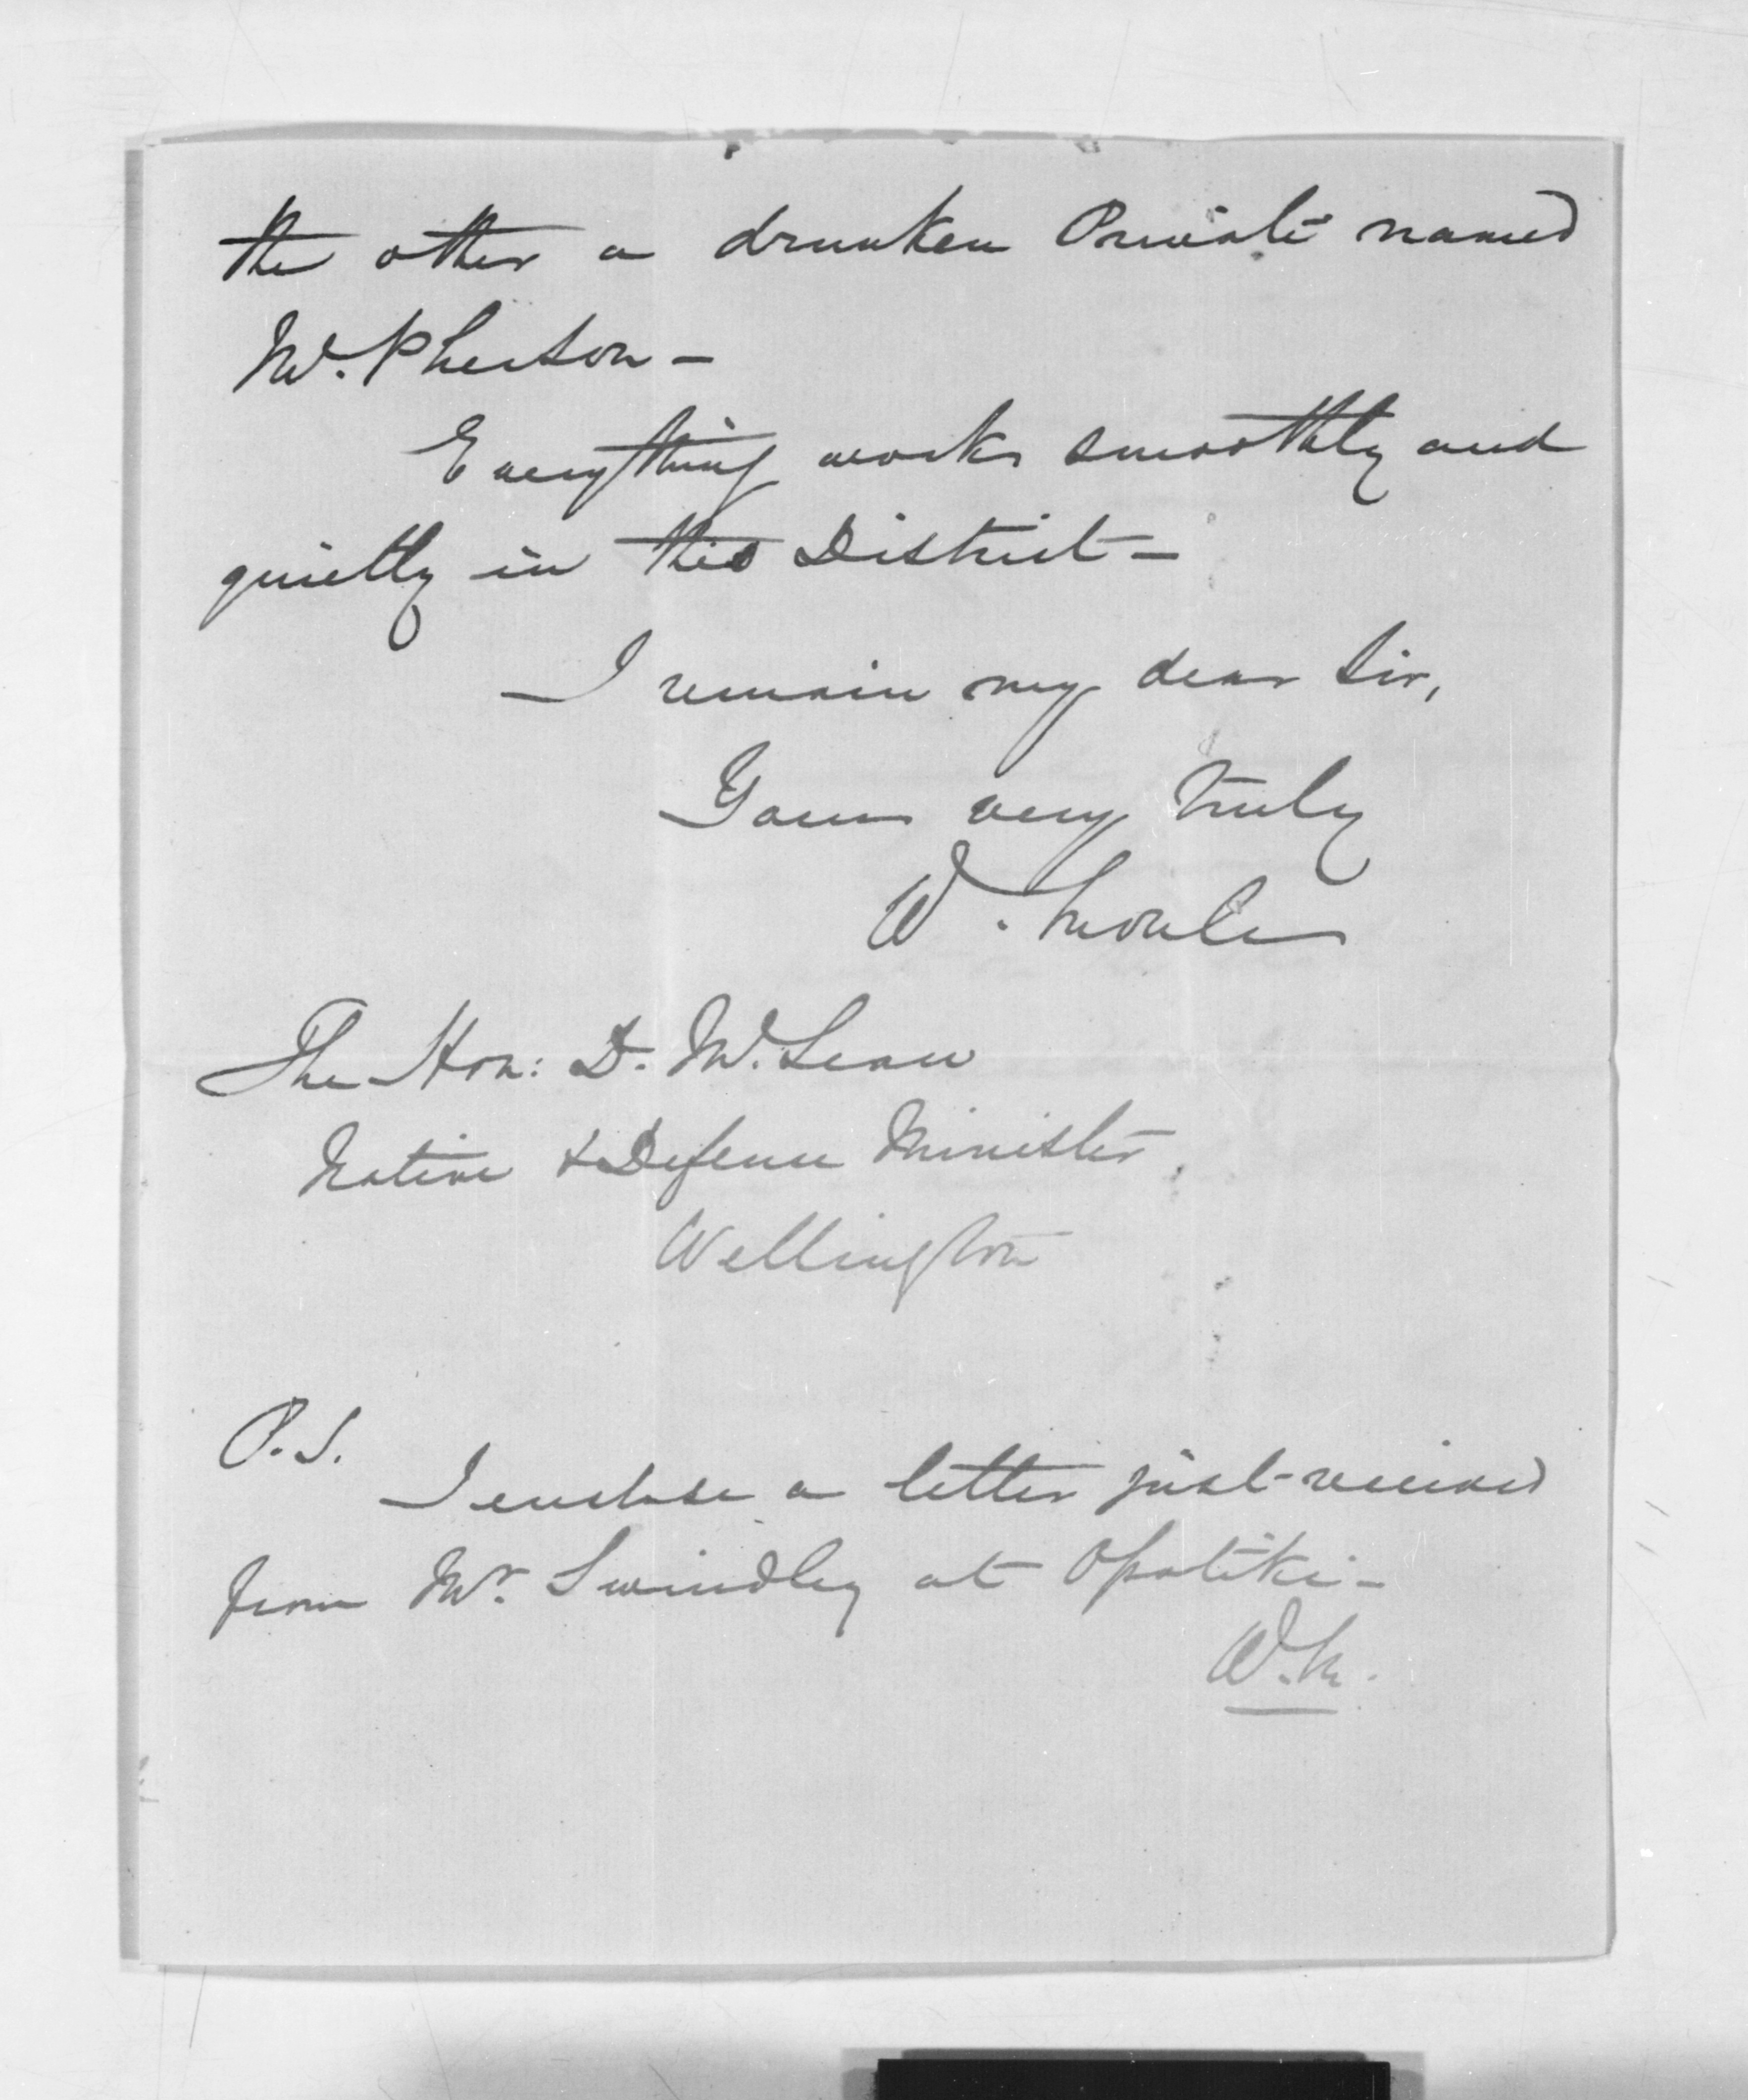 the other a drunken Private named
McPherson —
Everything works smoothly and
quietly in this District —
I remain my dear Sir,
Yours very truly
W. Moule
The Hon: D. McLean
Native & Defence Minister
Wellington
P.S.
I enclose a letter just received
from Mr. Swindley at Opotiki —
W.M.